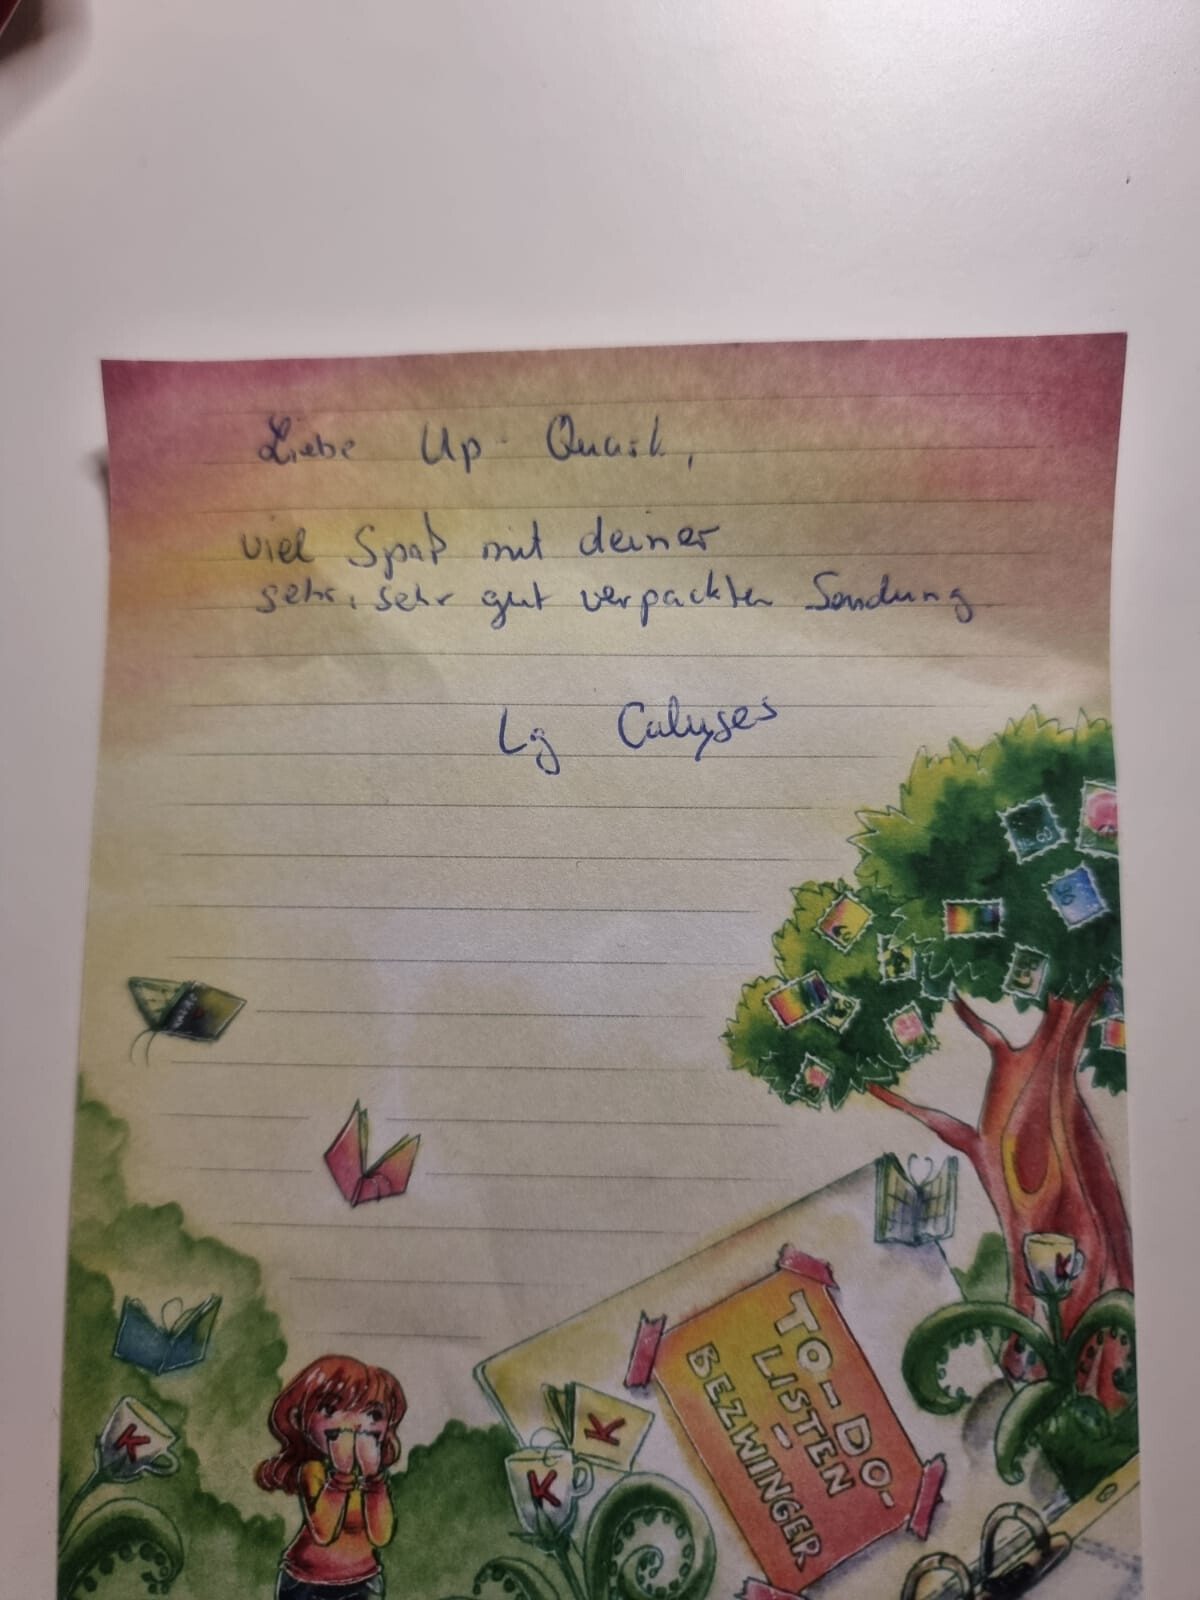 Liebe Up-Quark,
viel Spaß mit deiner
sehr, sehr gut verpackten Sendung
Lg Calyses
K
K
K
K
TO-DO-
LISTEN
-
BEZWINGER